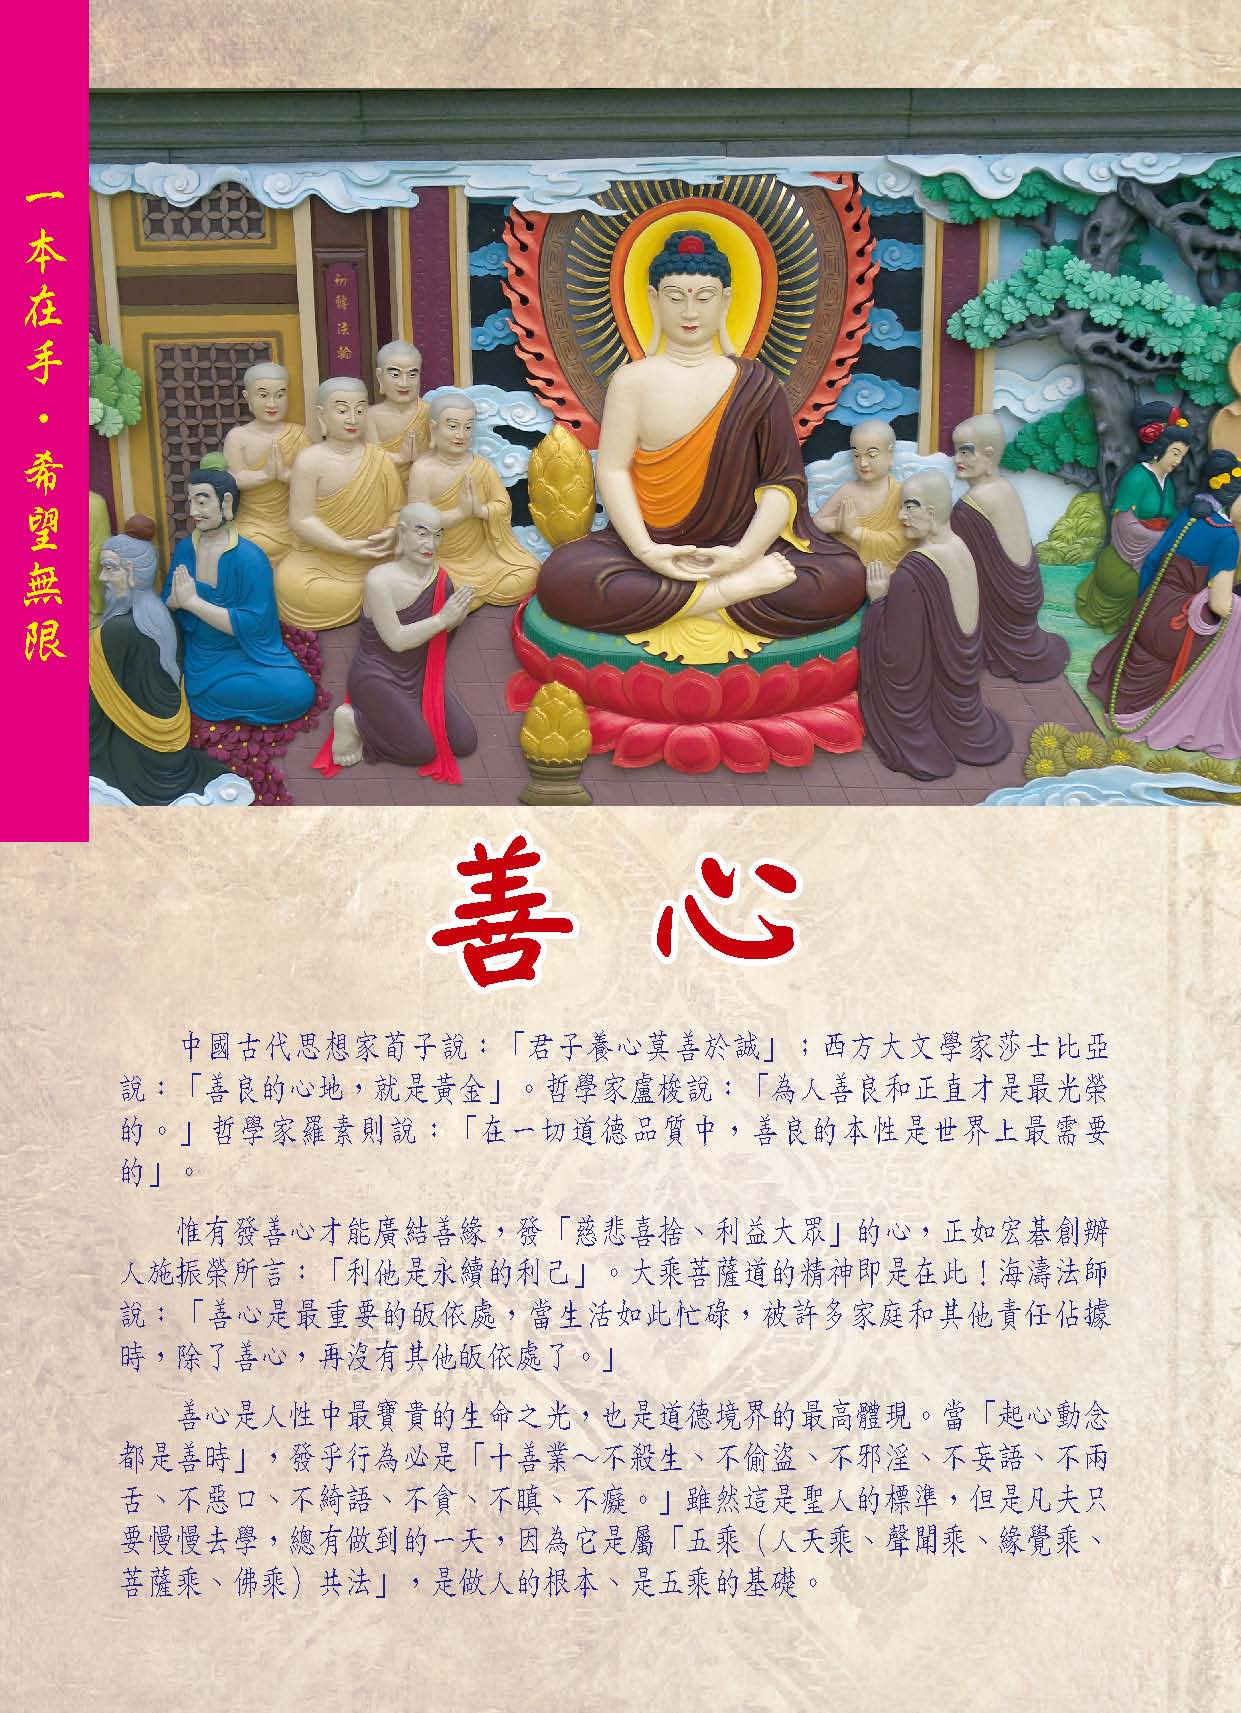 一本在手・希望無限
初轉法輪
善心
中國古代思想家荀子說：「君子養心莫善於誠」；西方大文學家莎士比亞
說：「善良的心地，就是黃金」。哲學家盧梭說：「為人善良和正直才是最光榮
的。」哲學家羅素則說：「在一切道德品質中，善良的本性是世界上最需要
的」。
惟有發善心才能廣結善緣，發「慈悲喜捨、利益大眾」的心，正如宏碁創辦
人施振榮所言：「利他是永續的利己」。大乘菩薩道的精神即是在此！海濤法師
說：「善心是最重要的皈依處，當生活如此忙碌，被許多家庭和其他責任佔據
時，除了善心，再沒有其他皈依處了。」
善心是人性中最寶貴的生命之光，也是道德境界的最高體現。當「起心動念
都是善時」，發乎行為必是「十善業～不殺生、不偷盜、不邪淫、不妄語、不兩
舌、不惡口、不綺語、不貪、不瞋、不癡。」雖然這是聖人的標準，但是凡夫只
要慢慢去學，總有做到的一天，因為它是屬「五乘（人天乘、聲聞乘、緣覺乘、
菩薩乘、佛乘）共法」，是做人的根本、是五乘的基礎。